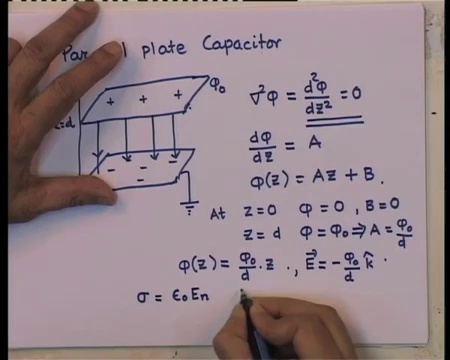 Par l plate Capacitor
+ + + φ₀
=d
- - - -
- -
∇²φ = d²φ/dz² = 0
dφ/dz = A
φ(z) = Az + B.
At z=0 φ=0, B=0
z=d φ=φ₀ ⇒ A = φ₀/d
φ(z) = φ₀/d · z ., E⃗ = -φ₀/d k̂ .
σ = ϵ₀En